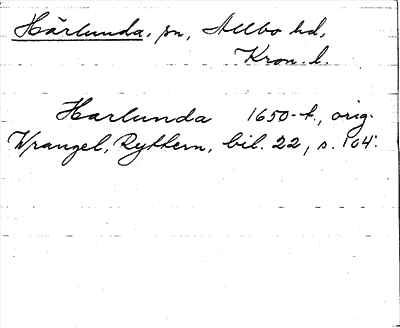 Härlunda, sn, Allbo hd,
Kron. l.
Harlunda 1650-t., orig.
Wrangel, Ryttern, bil. 22, s. 104.